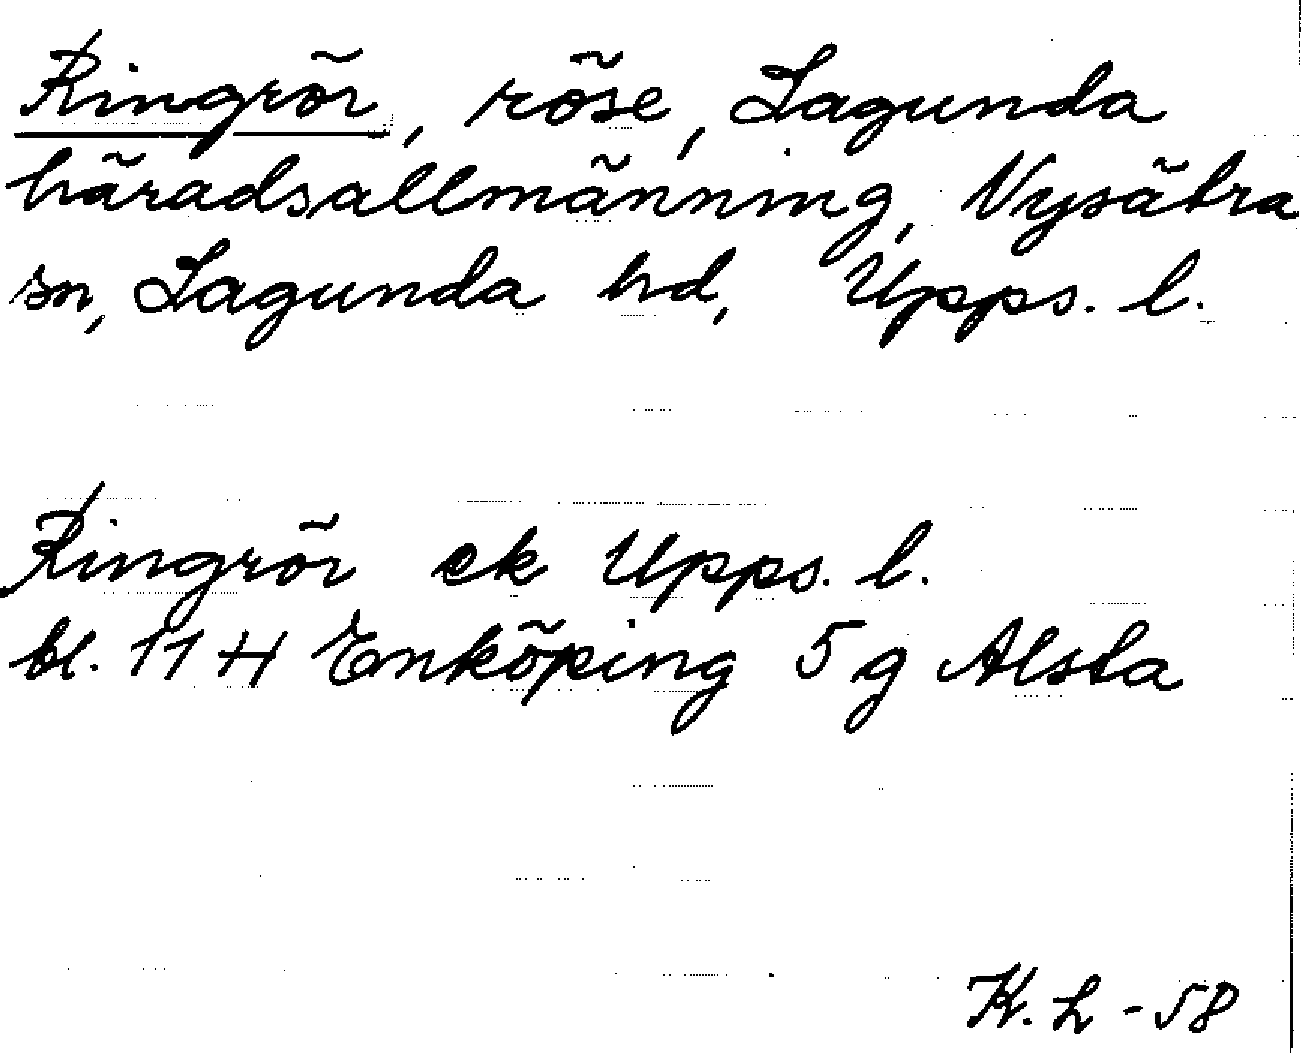 Ringrör, röse, Lagunda
häradsallmänning, Nysätra
sn, Lagunda hd, Upps. l.
Ringrör ek Upps. l.
bl. 11 H Enköping 5 g Alsta
K. L - 58